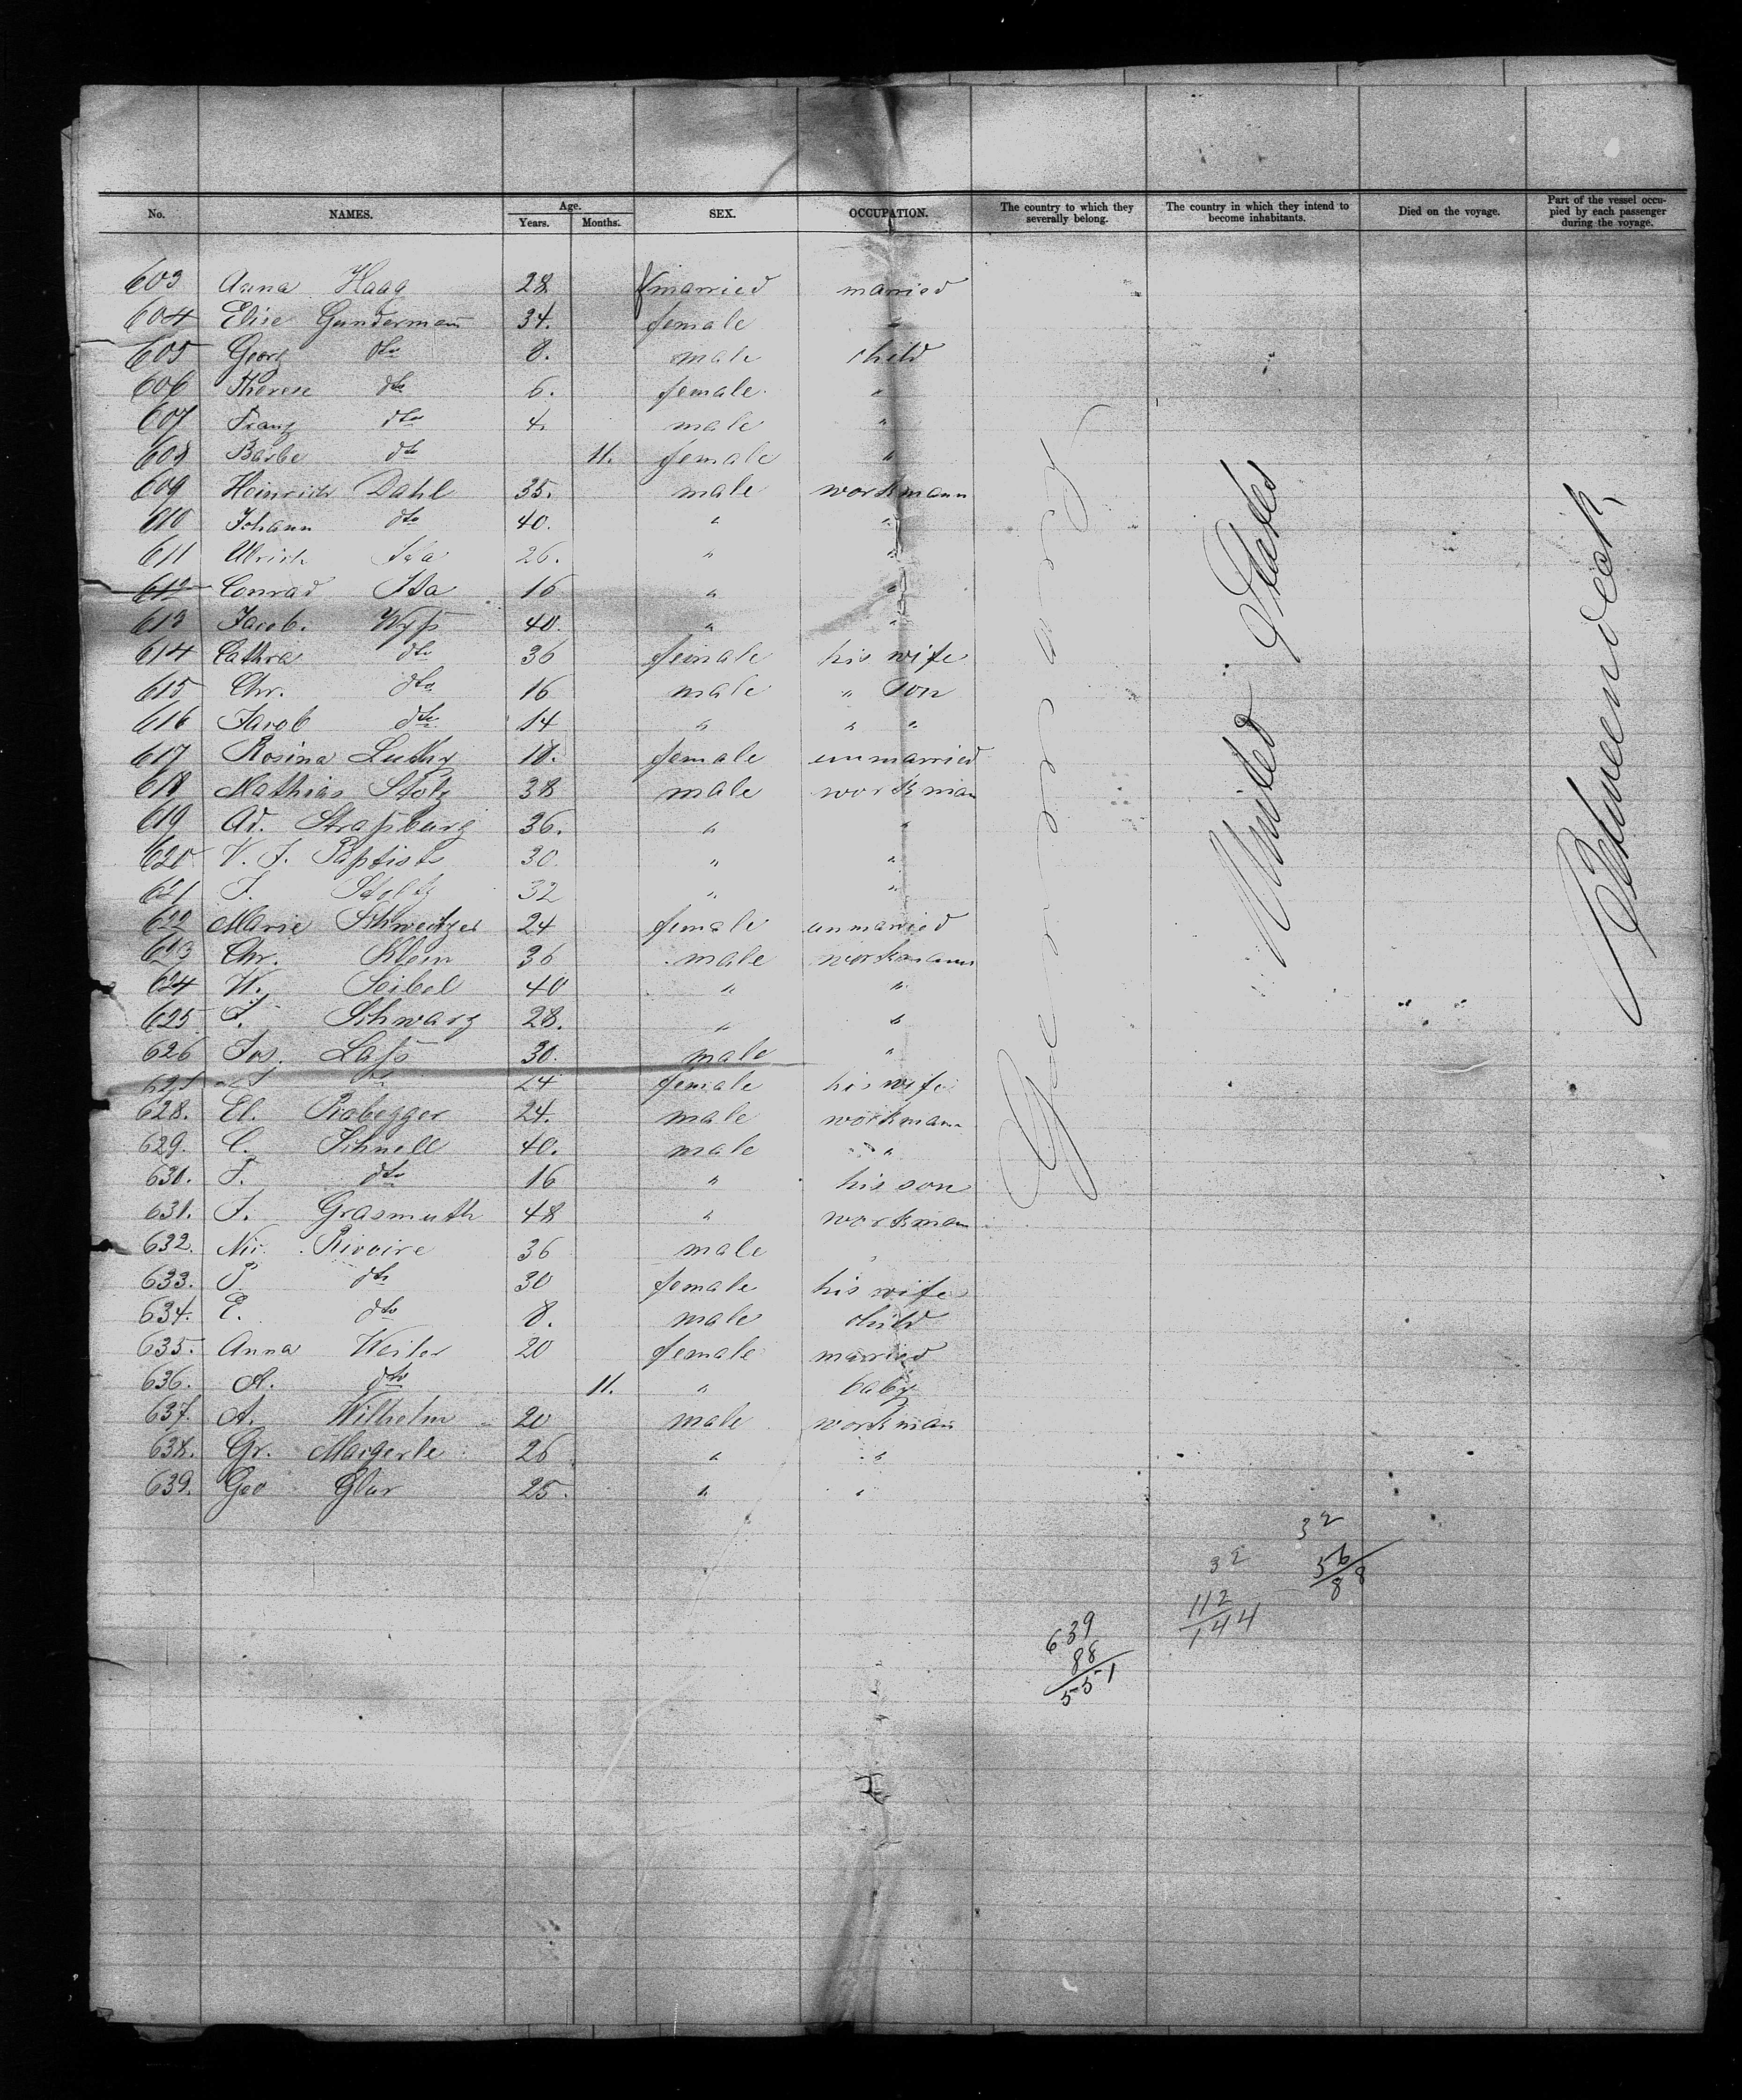 No. NAMES. Age. Years. Months. SEX. OCCUPATION. The country to which they severally belong. The country in which they intend to become inhabitants. Died on the voyage. Part of the vessel occupied by each passenger during the voyage.
603 Anna Haag 28 married married
604 Elise Gundermann 34. female "
605 Georg dto 8. male child
606 Therese dto 6. female "
607 Franz dto 4. male "
608 Barbe dto 11. female "
609 Heinrich Dahl 35. male workmann
610 Johann dto 40. " "
611 Ulrich 26. " "
612 Conrad 16 " "
613 Jacob. Wyß 40. " "
614 Cathra dto 36 female his wife
615 Chr. dto 16 male " Son
616 Jacob dto 14 " " "
617 Rosina Luthy 18. female unmarried
618 Mathias Stolz 38 male workman
619 Ad. Straßburg 36. " "
620 V. J. Baptiste 30 " "
621 32 " "
622 Marie Schweitzer 24 female unmarried
623 Chr. Klein 36 male workmann
624 W. Seibel 40 " "
625 F. Schwarz 28. " "
626 Jos. Laß 30. male "
627 24 female his wife
628. El. Rabegger 24. male workmann
629. C. Schnell 40. male "
630. F. dto 16 " his son
631. J. Grasmuth 48 " workman
632. Nic. Rivoire 36 male
633. P. dto 30 female his wife
634. E. dto 8. male child
635. Anna Weiler 20 female married
636. A. dto 11. " baby
637. A. Wilhelm 20 male workman
638. Gr. Maigerle 26 " "
639. Geo Glar 25. " "
Germany
United States
Between deck
32
56
88
32
112
144
639
88
551